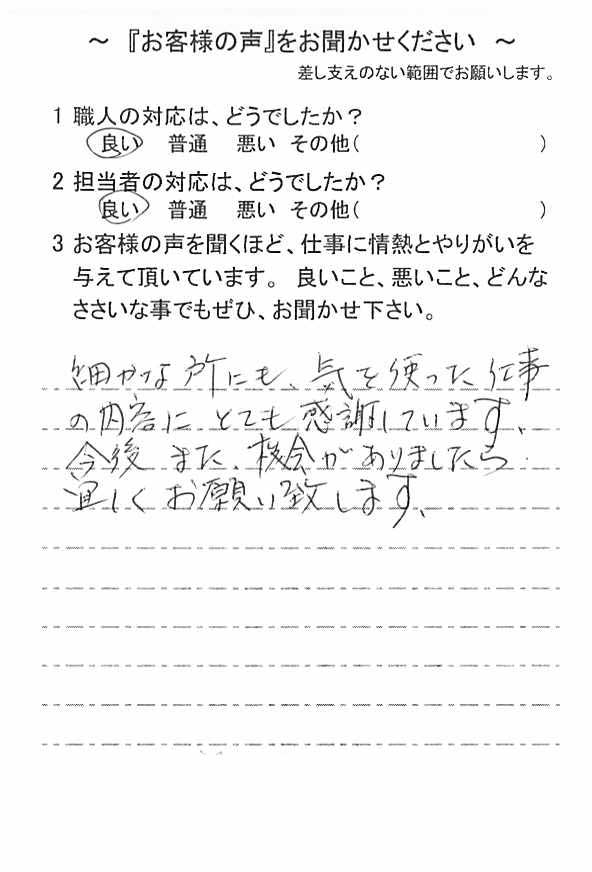 ～ 『お客様の声』をお聞かせください ～
差し支えのない範囲でお願いします。
1 職人の対応は、どうでしたか？
良い 普通 悪い その他( )
2 担当者の対応は、どうでしたか？
良い 普通 悪い その他( )
3 お客様の声を聞くほど、仕事に情熱とやりがいを
与えて頂いています。 良いこと、悪いこと、どんな
ささいな事でもぜひ、お聞かせ下さい。
細かな所にも、気を使った仕事
の内容に とても感謝しています、
今後 また、機会がありましたら
宜しくお願い致します、